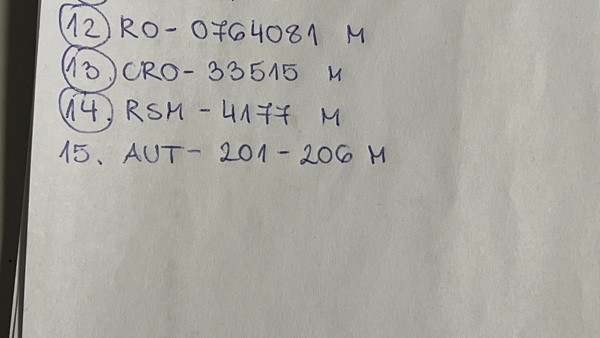 12 RO- 0764081 M
13. CRO- 33515 M
14. RSM - 4177 M
15. AUT- 201-206 M